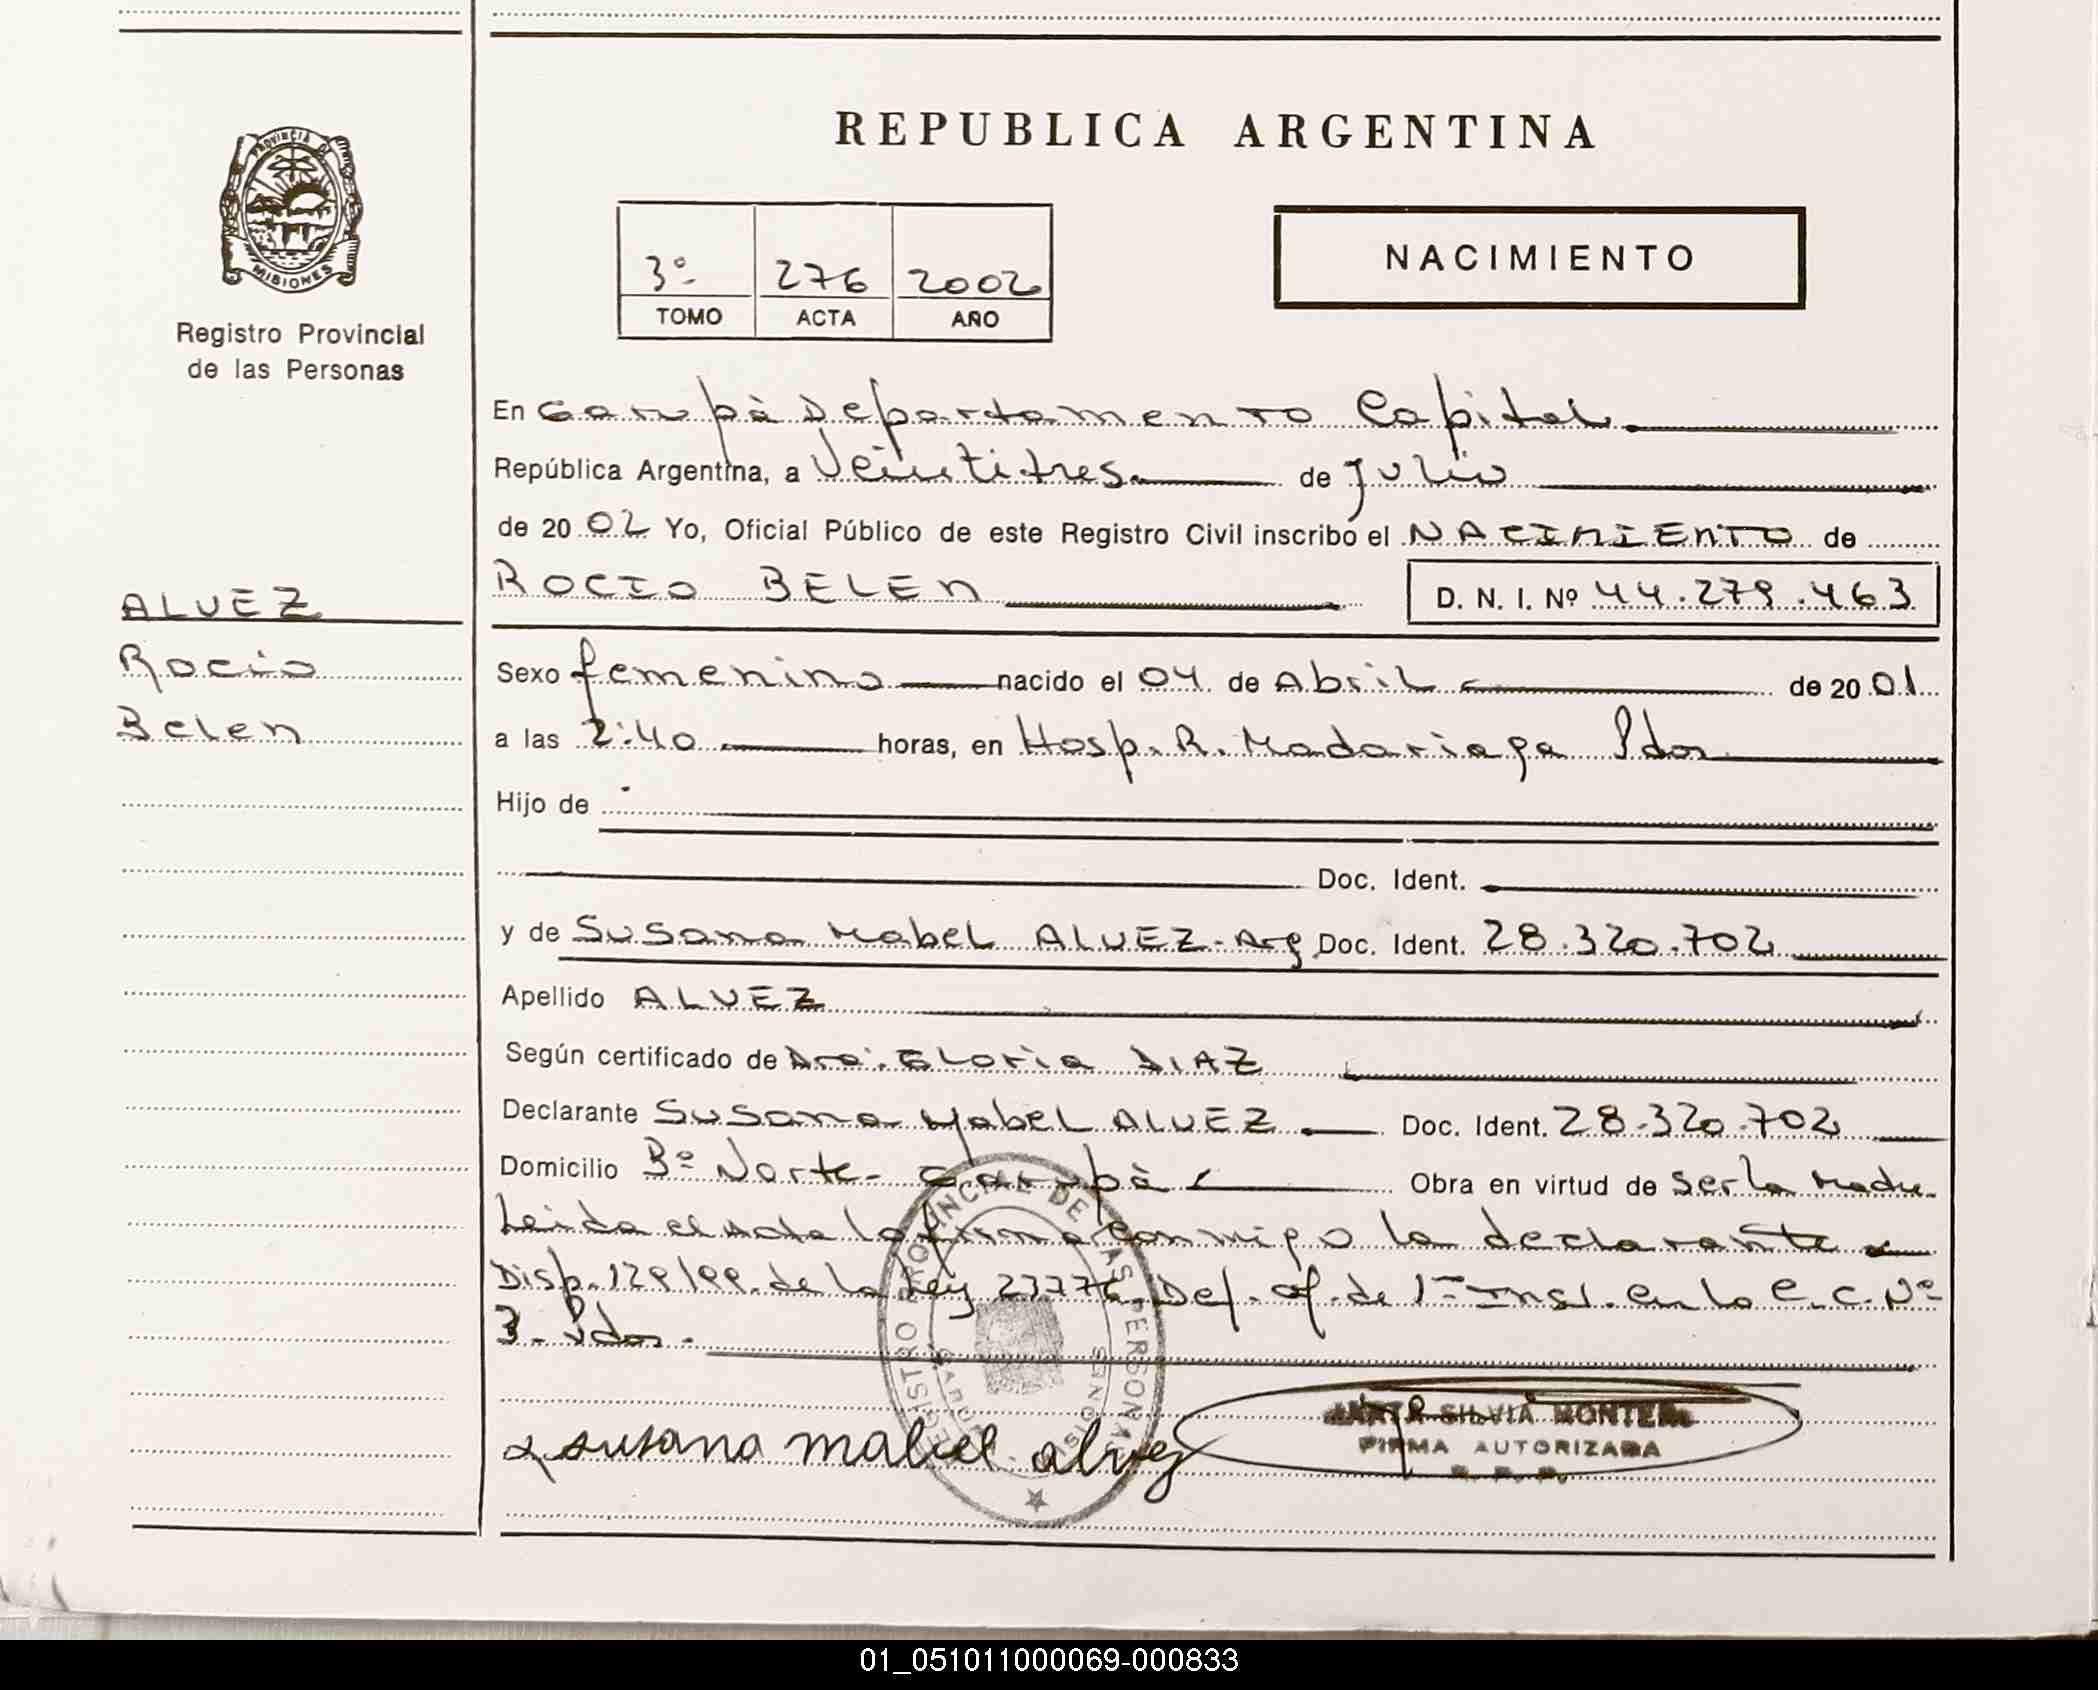 REPUBLICA ARGENTINA
Provincia de Misiones
Registro Provincial
de las Personas
3º 276 2002
TOMO ACTA AÑO
NACIMIENTO
En Garupà Departamento Capital.
República Argentina, a Veintitres de Julio
de 20 02 Yo, Oficial Público de este Registro Civil inscribo el NACIMIENTO de
ROCIO BELEN D. N. I. Nº 44.279.463
ALVEZ
Rocio
Belen
Sexo femenino nacido el 04 de Abril de 20 01
a las 2:40 horas, en Hosp. R. Madariaga Pdas
Hijo de
Doc. Ident.
y de Susana Mabel ALVEZ-Arg Doc. Ident. 28.320.702
Apellido ALVEZ
Según certificado de Dra. Gloria DIAZ
Declarante Susana Mabel ALVEZ Doc. Ident. 28.320.702
Domicilio Bº Norte- Garupà Obra en virtud de ser la Madre
Leida el acta la firma conmigo la declarante
Disp. 129/99 de la Ley 23776 Def. of. de 1ª Inst. en lo C.C. Nº
3- Pdas.
REGISTRO PROVINCIAL DE LAS PERSONAS
GARUPA MISIONES
susana mabel alvez
SILVIA
FIRMA AUTORIZADA
01_051011000069-000833